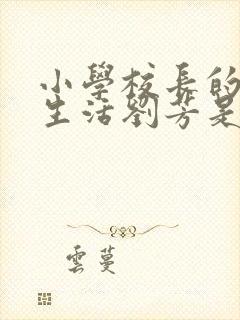 小學校長的
生活劉芳是
雲蔓